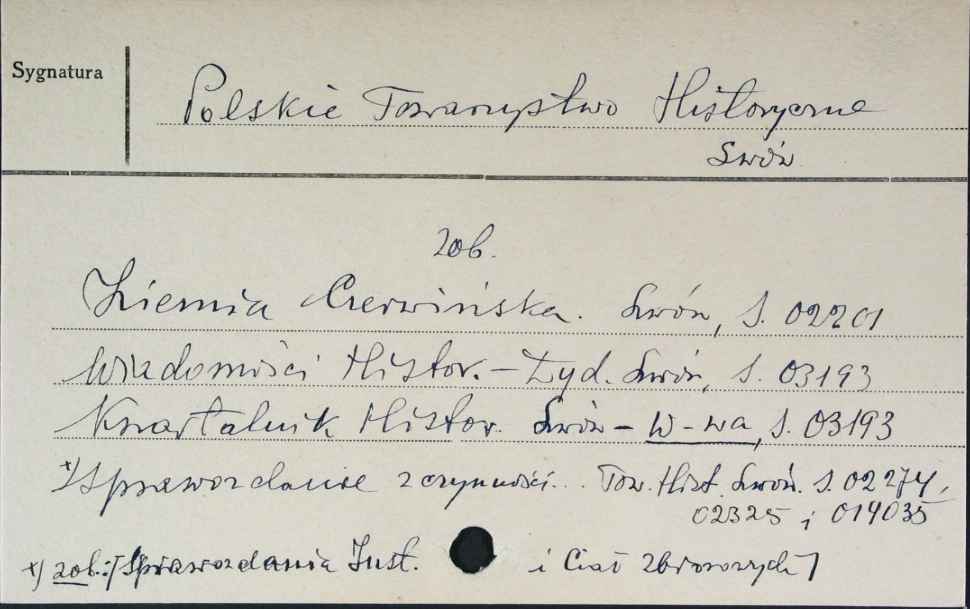 Sygnatura
Polskie Towarzystwo Historyczne
Lwów
zob.
Ziemia Czerwińska. Lwów, S. 02201
Wiadomości Histor. - Dyd. Lwów, S. 03193
Kwartalnik Histor. Lwów - W-wa, S. 03193
*) Sprawozdanie z czynności... Tow. Hist. Lwów. S. 02274,
02325 i 014035
*) zob.: [Sprawozdania Inst. i Ciał zbiorowych]